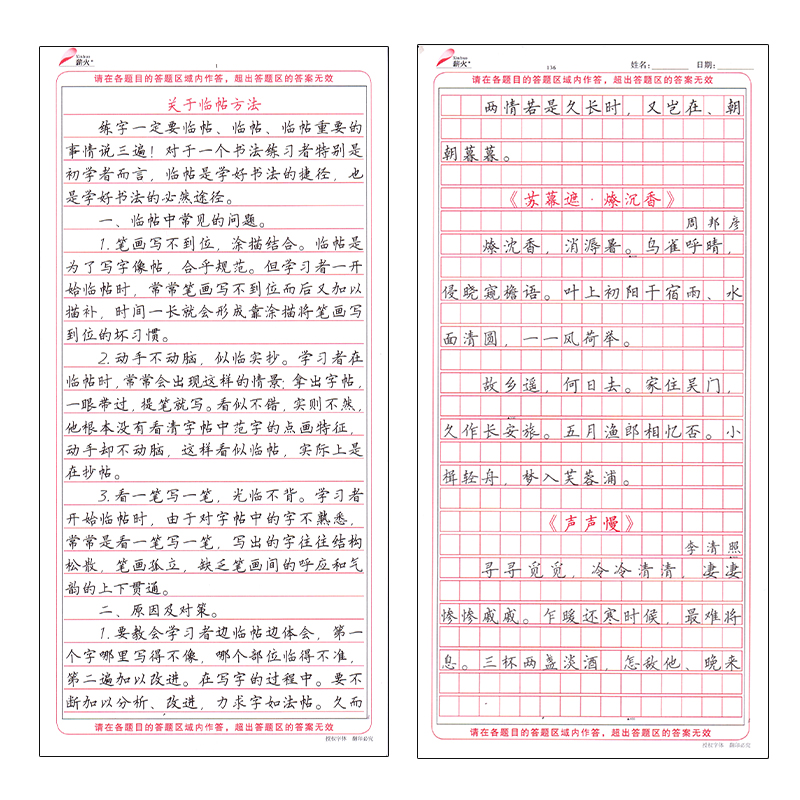 Xinhuo
薪火
1
请在各题目的答题区域内作答，超出答题区的答案无效
关于临帖方法
练字一定要临帖、临帖、临帖重要的
事情说三遍！对于一个书法练习者特别是
初学者而言，临帖是学好书法的捷径，也
是学好书法的必然途径。
一、临帖中常见的问题。
1.笔画写不到位，涂描结合。临帖是
为了写字像帖，合乎规范。但学习者一开
始临帖时，常常笔画写不到位而后又加以
描补，时间一长就会形成靠涂描将笔画写
到位的坏习惯。
2.动手不动脑，似临实抄。学习者在
临帖时，常常会出现这样的情景：拿出字帖，
一眼带过，提笔就写。看似不错，实则不然，
他根本没有看清字帖中范字的点画特征，
动手却不动脑，这样看似临帖，实际上是
在抄帖。
3.看一笔写一笔，光临不背。学习者
开始临帖时，由于对字帖中的字不熟悉，
常常是看一笔写一笔，写出的字往往结构
松散，笔画孤立，缺乏笔画间的呼应和气
韵的上下贯通。
二、原因及对策。
1.要教会学习者边临帖边体会，第一
个字哪里写得不像，哪个部位临得不准，
第二遍加以改进。在写字的过程中。要不
断加以分析、改进，力求字如法帖。久而
请在各题目的答题区域内作答，超出答题区的答案无效
授权字体 翻印必究
Xinhuo
薪火
136
姓名：
日期：
请在各题目的答题区域内作答，超出答题区的答案无效
两情若是久长时，又岂在、朝
朝暮暮。
《苏幕遮·燎沉香》
周邦彦
燎沈香，消溽暑。鸟雀呼晴，
侵晓窥檐语。叶上初阳干宿雨、水
面清圆，一一风荷举。
故乡遥，何日去。家住吴门，
久作长安旅。五月渔郎相忆否。小
楫轻舟，梦入芙蓉浦。
《声声慢》
李清照
寻寻觅觅，冷冷清清，凄凄
惨惨戚戚。乍暖还寒时候，最难将
息。三杯两盏淡酒，怎敌他、晚来
请在各题目的答题区域内作答，超出答题区的答案无效
授权字体 翻印必究